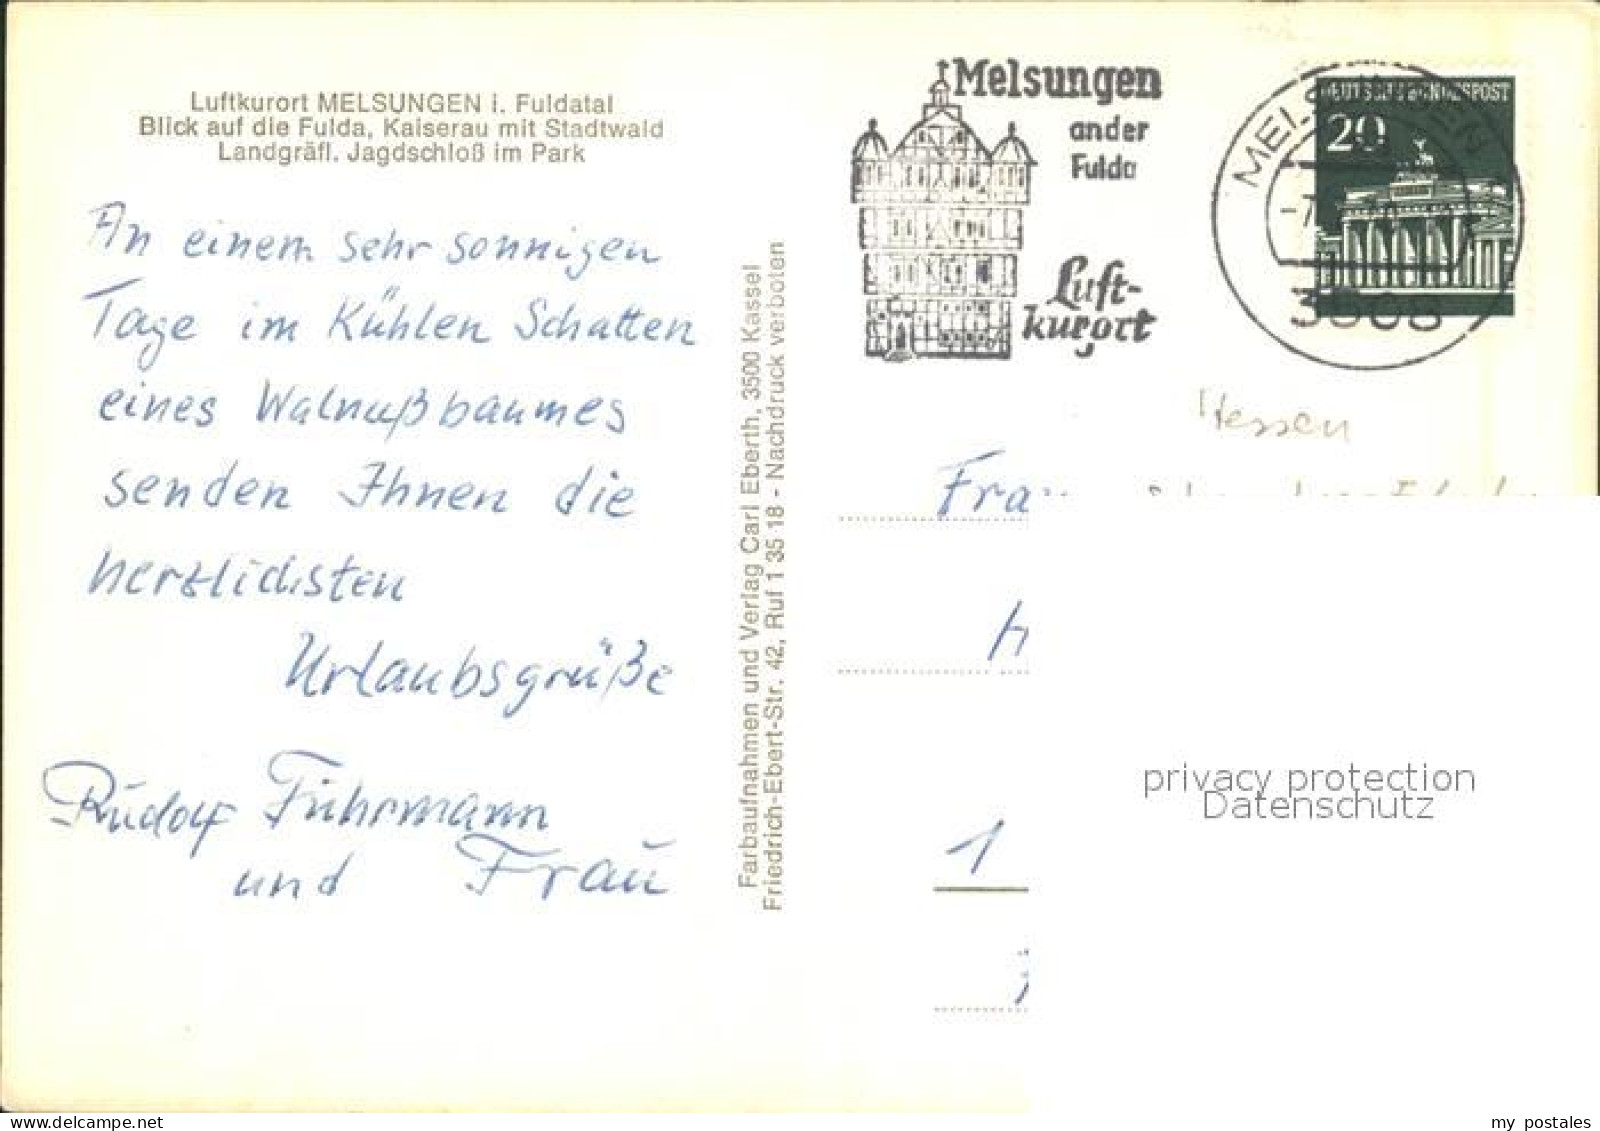 Luftkurort MELSUNGEN i. Fuldatal
Blick auf die Fulda, Kaiserau mit Stadtwald
Landgräfl. Jagdschloß im Park
An einem sehr sonnigen
Tage im Kühlen Schatten
eines Walnußbaumes
senden Ihnen die
herzlichsten
Urlaubsgrüße
Rudolf Fuhrmann
und Frau
Farbaufnahmen und Verlag Carl Eberth, 3500 Kassel
Friedrich-Ebert-Str. 42, Ruf 1 35 18 - Nachdruck verboten
Melsungen
an der
Fulda
Luft-
kurort
MELSUNGEN
3508
DEUTSCHE BUNDESPOST
20
Hessen
1
privacy protection
Datenschutz
my postales